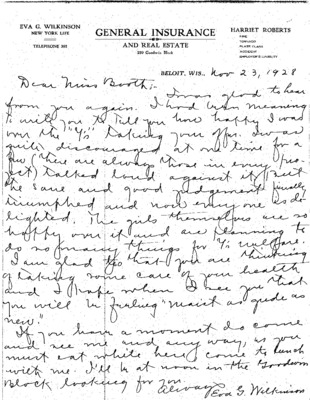 EVA G. WILKINSON
NEW YORK LIFE
TELEPHONE
GENERAL INSURANCE
AND REAL ESTATE
Goodwin Block
HARRIET ROBERTS
FIRE
TORNADO
PLATE GLASS
ACCIDENT
EMPLOYER'S LIABILITY
BELOIT, WIS., Nov 23, 1928
Dear Miss Booth:-
I was glad to hear
from you again. I had been meaning
to write you to tell you how happy I was
over the "Y's" taking your offer. I was
quite discouraged at one time for a
few (there are always those in every
) talked loud against it but
the sane and good judgement finally
triumphed and now everyone is de-
lighted. The girls themselves are so
happy over it and are planning to
do so many things for Y's welfare.
I am glad too that you are thinking
of taking some care of your health
and I hope when I see you that
you will be feeling "maist as gude as
new."
If you have a moment do come
and see me and any way, as you
must eat while here, come to lunch
with me. I'll be at noon in the Goodwin
Block looking for you.
Always
Eva G. Wilkinson